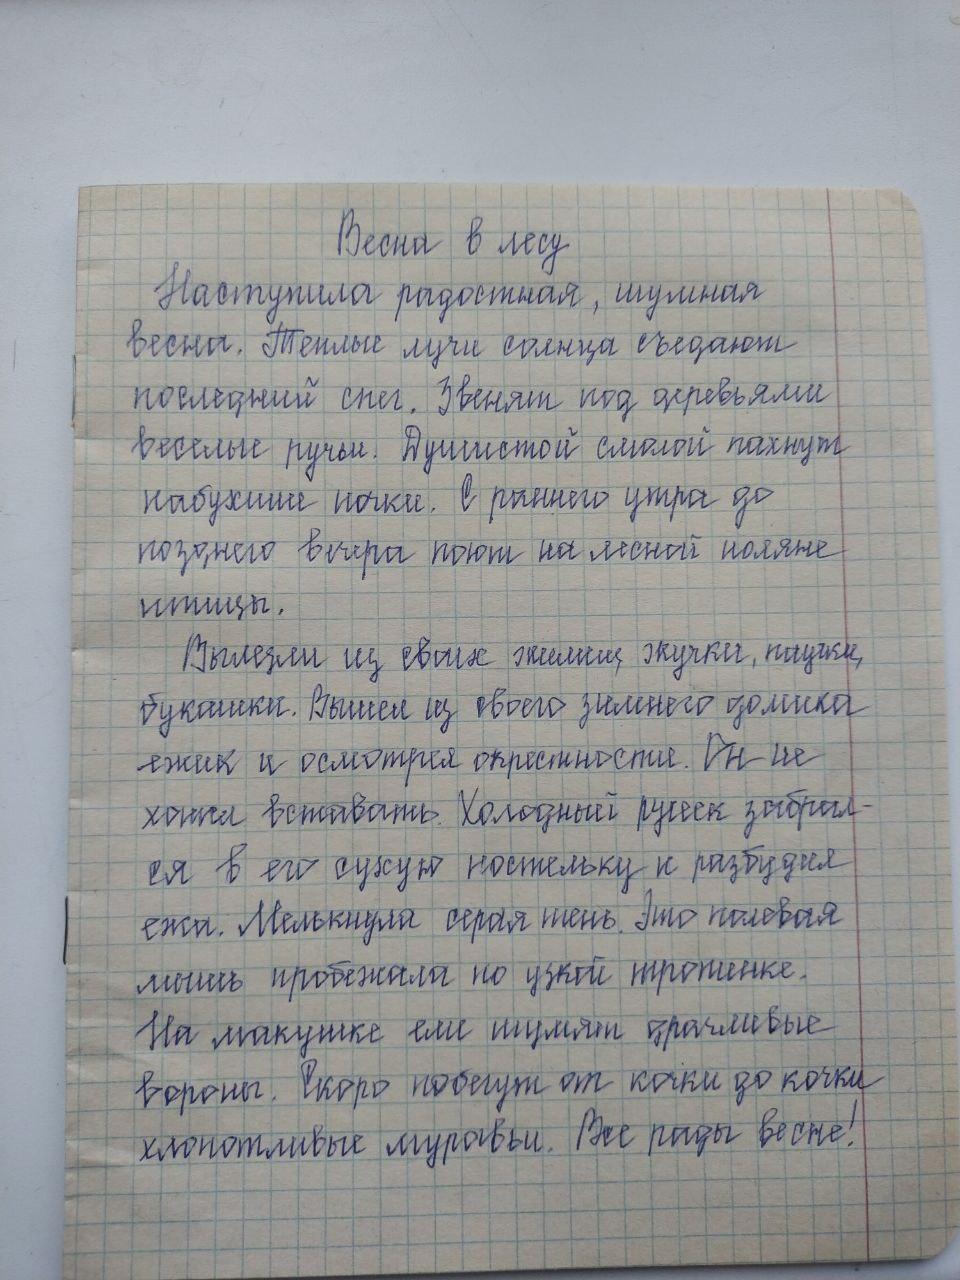 Весна в лесу
Наступила радостная, шумная
весна. Теплые лучи солнца съедают
последний снег. Звенят под деревьями
веселые ручьи. Душистой смолой пахнут
набухшие почки. С раннего утра до
позднего вечера поют на лесной поляне
птицы.
Вылезли из своих жилищ жучки, паучки,
букашки. Вышел из своего зимнего домика
ежик и осмотрел окрестности. Он не
хотел вставать. Холодный ручеек забрал-
ся в его сухую постельку и разбудил
ежа. Мелькнула серая тень. Это полевая
мышь пробежала по узкой тропинке.
На макушке ели шумят драчливые
вороны. Скоро побегут от кочки до кочки
хлопотливые муравьи. Все рады весне!